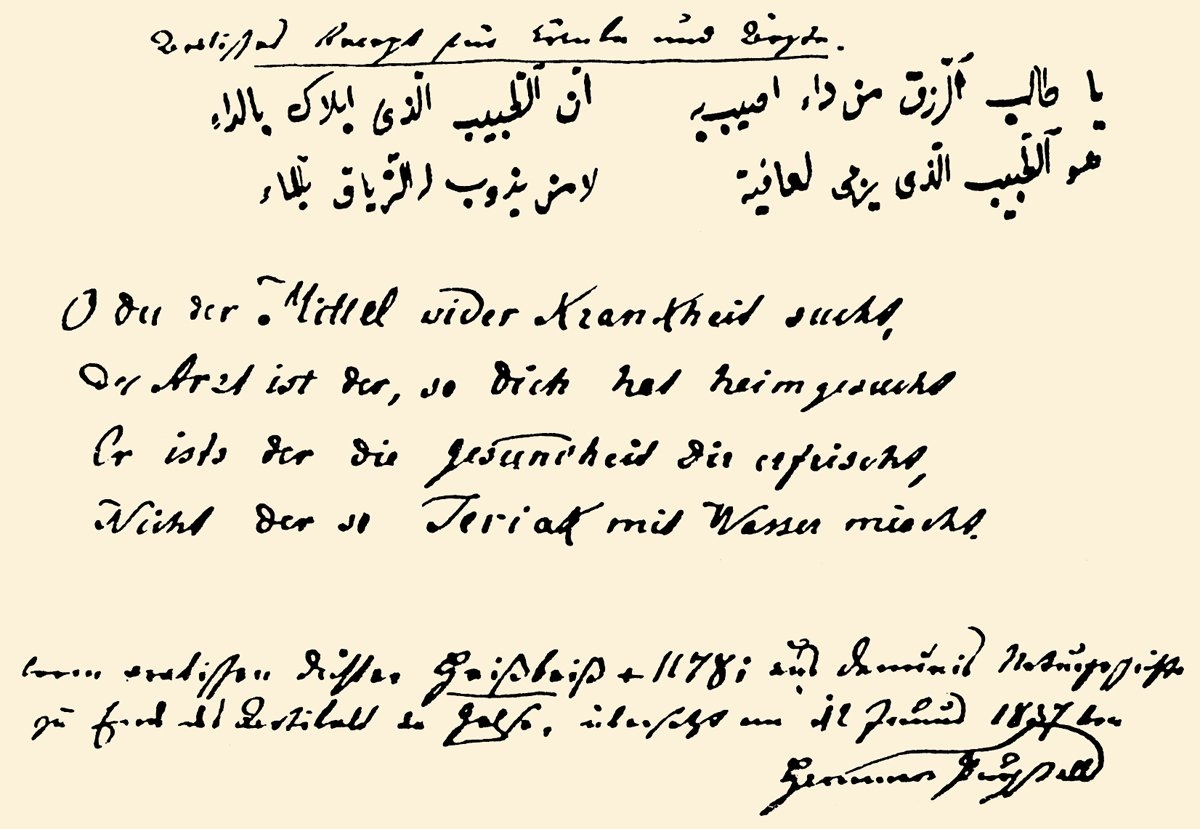 Arabisches Recept für Kranke und Ärzte.
يا طالب ٱلرزق من داء اصيب به أن ٱلطبيب الّذى ابلاك بالداءِ
هو ٱلطبيب الّذى يرجى لعافية لا من يذوب لك التّرياق بالماء
O du der Mittel wider Krankheit sucht,
Der Arzt ist der, so Dich hat heimgesucht
Er ists der die Gesundheit Dir erfrischt,
Nicht der so Teriak mit Wasser mischt.
vom arabischen Dichter † 1178; aus Demiris Naturgeschichte
zu Ende des Artikels übersetzt am 12 Januar 1837 von
Hammer Purgstall